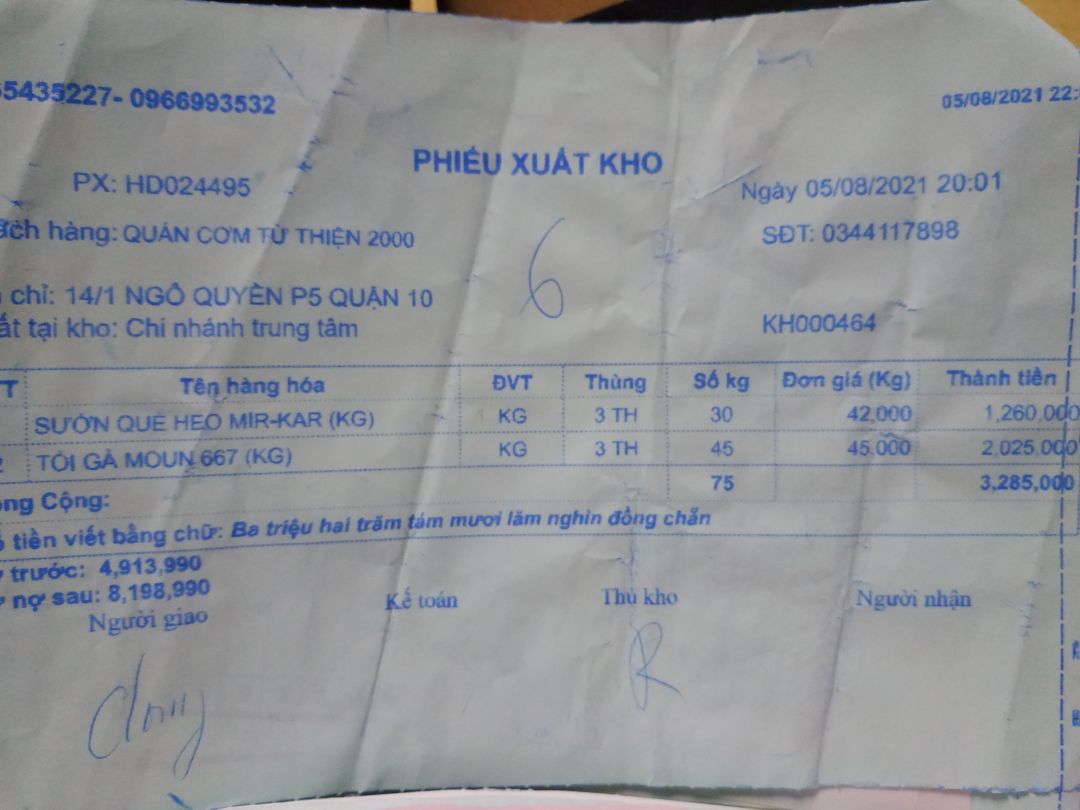 5435227- 0966993532
05/08/2021 22:
PHIẾU XUẤT KHO
PX: HD024495
Ngày 05/08/2021 20:01
ách hàng: QUÁN CƠM TỪ THIỆN 2000
SĐT: 0344117898
6
chỉ: 14/1 NGÔ QUYỀN P5 QUẬN 10
ất tại kho: Chi nhánh trung tâm
KH000464
T Tên hàng hóa ĐVT Thùng Số kg Đơn giá (Kg) Thành tiền
SƯỜN QUE HEO MIR-KAR (KG) KG 3 TH 30 42,000 1,260,000
2 TỎI GÀ MOUN 667 (KG) KG 3 TH 45 45,000 2,025,000
ổng Cộng: 75 3,285,000
ố tiền viết bằng chữ: Ba triệu hai trăm tám mươi lăm nghìn đồng chẵn
ợ trước: 4,913,990
ợ nợ sau: 8,198,990
Người giao Kế toán Thủ kho Người nhận